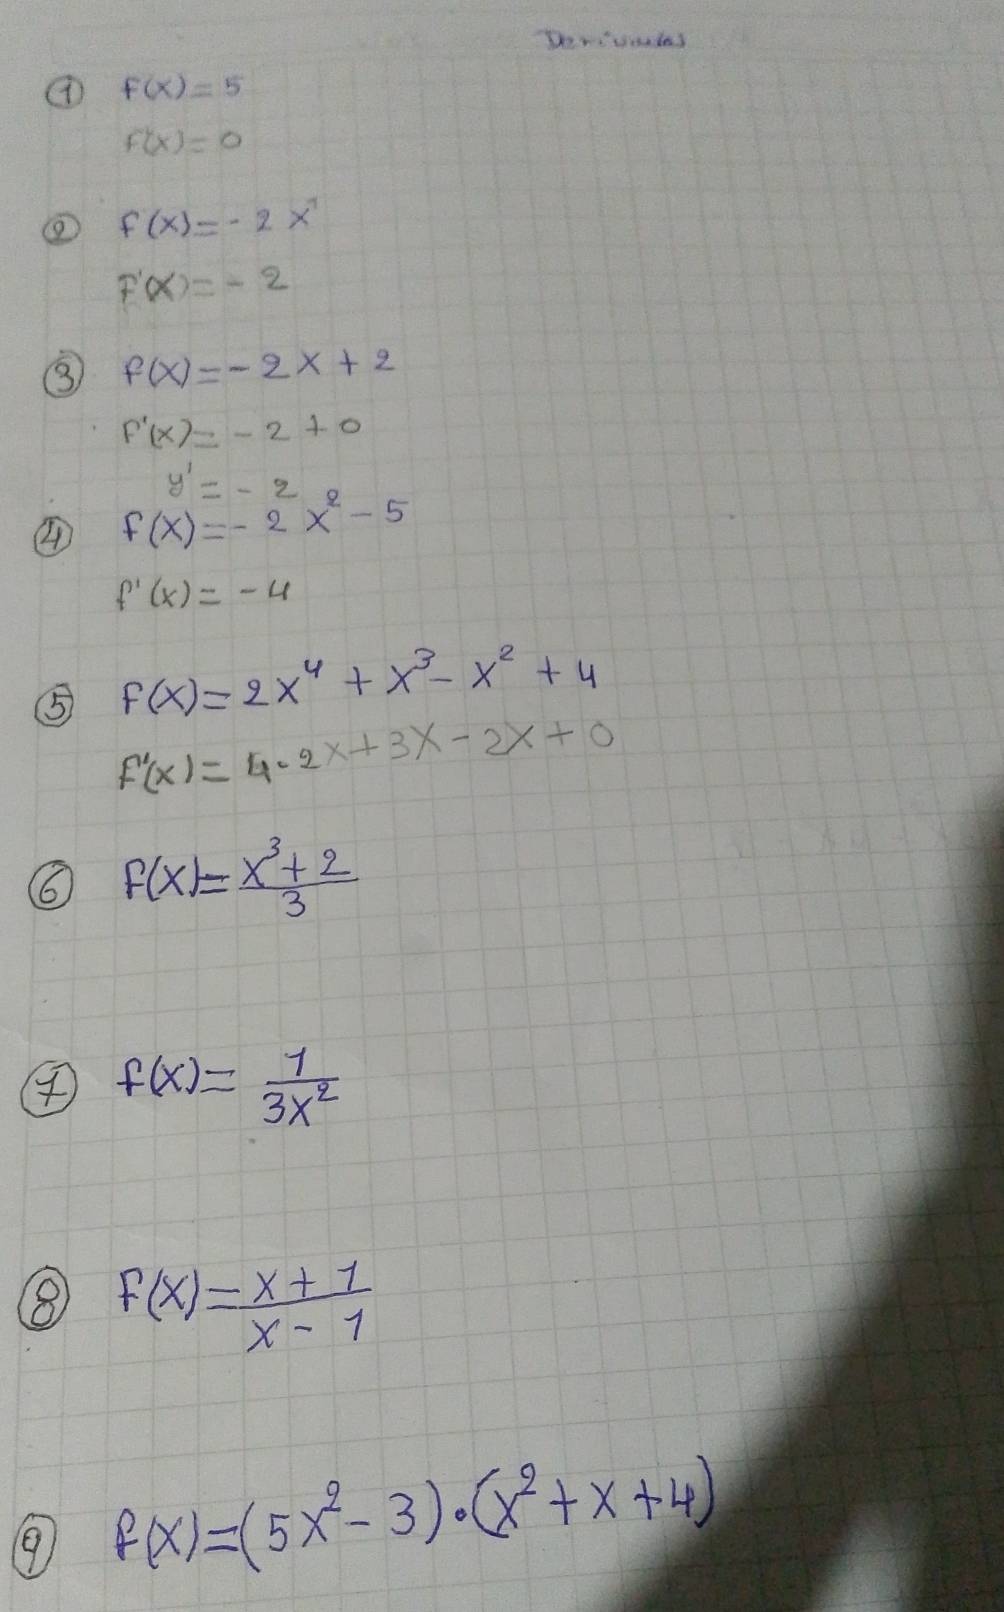 Derivadas
① f(x) = 5
f'(x) = 0
② f(x) = - 2 x¹
F'(x) = - 2
③ f(x) = - 2x + 2
F'(x) = - 2 + 0
y' = - 2
④ f(x) = - 2 x² - 5
f'(x) = - 4
⑤ f(x) = 2x⁴ + x³ - x² + 4
F'(x) = 4·2x + 3x - 2x + 0
⑥ f(x) = \frac{x³ + 2}{3}
⑦ f(x) = \frac{1}{3x²}
⑧ f(x) = \frac{x + 1}{x - 1}
⑨ f(x) = (5x² - 3)·(x² + x + 4)